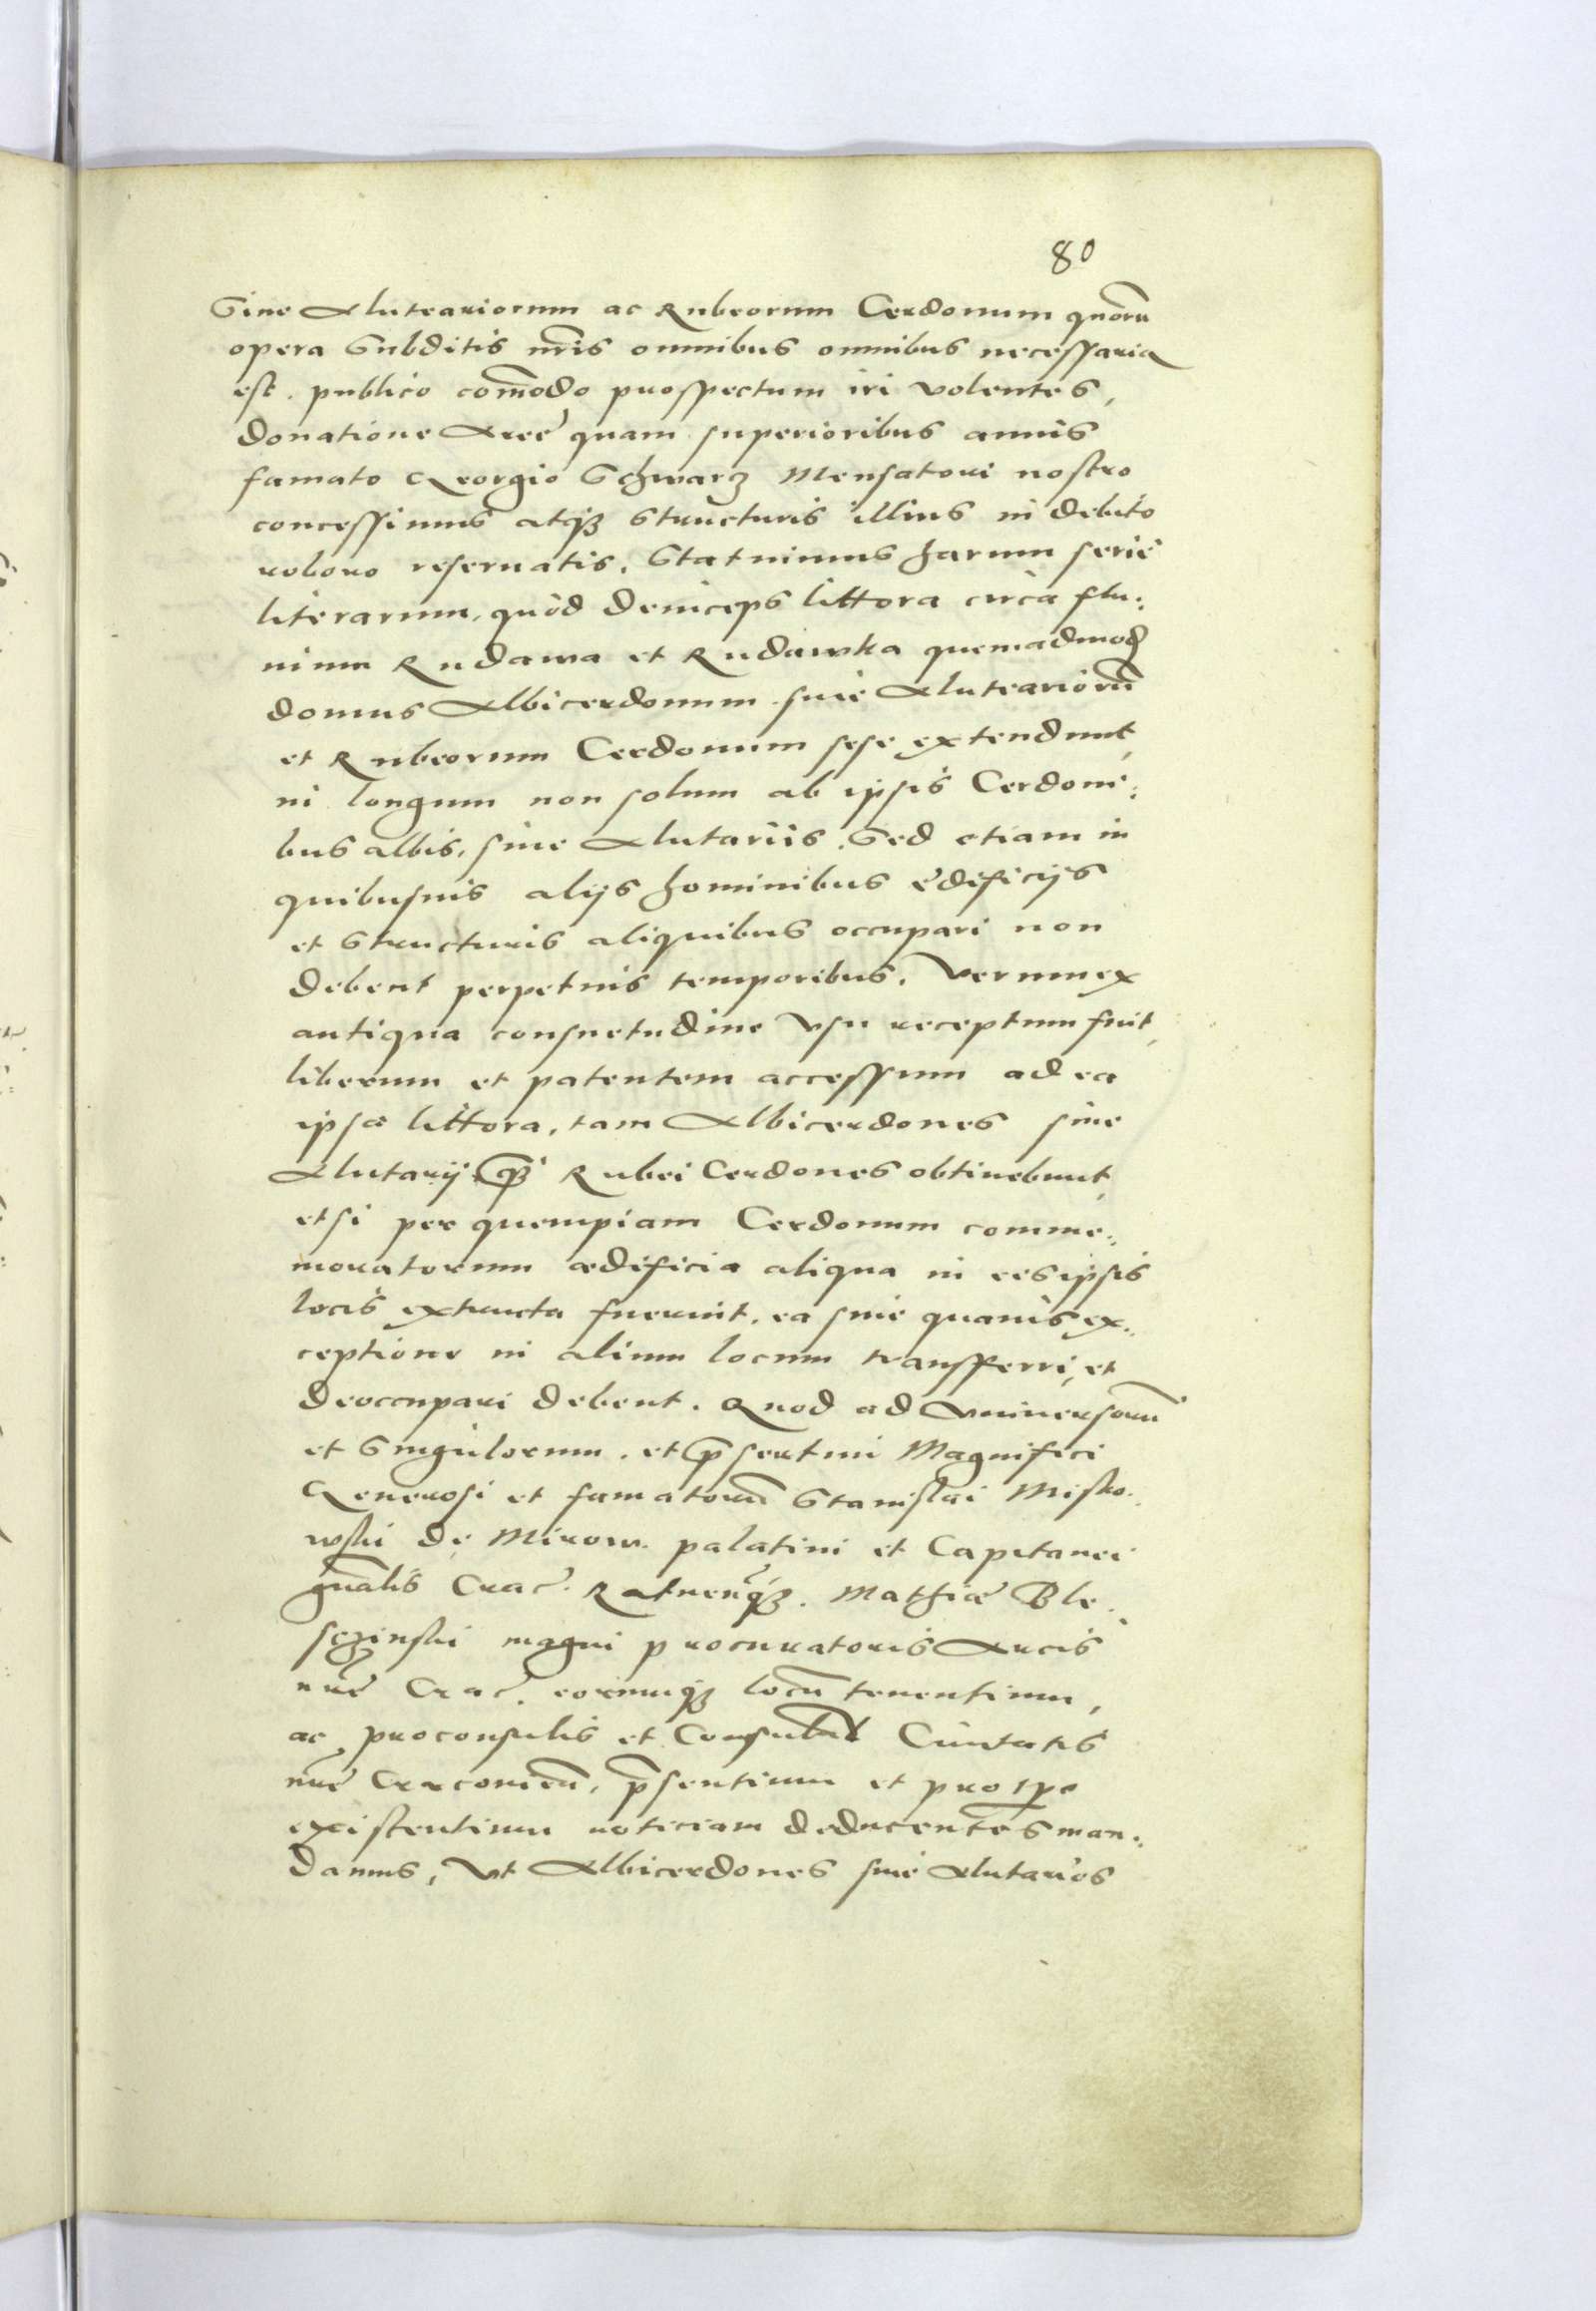 80
Siue Aluteariorum ac Rubeorum Cerdonum quorũ
opera Subditis nr̃is omnibus omnibus necessaria
est. publico com̃odo prospectum iri volentes,
donatione Areę quam superioribus annis
famato Georgio Schwarz Mensatori nostro
concessimus atq3 structuris illius in debito
robore reseruatis. Statuimus harum serie
literarum, quòd deinceps littora circa flu:
uium Rudawa et Rudawka quemadmod
domus Albicerdonum siue Aluteariorũ
et Rubeorum Cerdonum sese extendunt,
in longum non solum ab ipsis Cerdoni:
bus albis, siue Alutariis. Sed etiam in
quibusuis alijs hominibus ędificijs
et structuris aliquibus occupari non
debent perpetuis temporibus. Verum ex
antiqua consuetudine vsu receptum fuit,
liberum et patentem accessum ad ea
ipsa littora, tam Albicerdones siue
Alutarij q̃3 Rubei Cerdones obtinebunt,
etsi per quempiam Cerdonum comme:
moratorum ædificia aliqua in eis ipsis
locis extructa fuerint, ea sine quauis ex:
ceptione in alium locum transferri, et
deoccupari debent. Quod ad vniuersorũ
et Singulorum, et p̃sertim Magnifici
Generosi et famatorũ Stanislai Misko:
wski de Mirow. palatini et Capitanei
gñalis Crac̃. Ratneñq3. Mathiæ Ble:
sczinski magni procuratoris Arcis
nr̃ę Crac̃. eorumq3 locũ tenentium,
ac proconsulis et Consulũ Ciuitatis
nr̃ę Cracouieñ, p̃sentium et pro tp̃e
existentium noticiam deducentes man:
damus, vt Albicerdones siue Alutarios